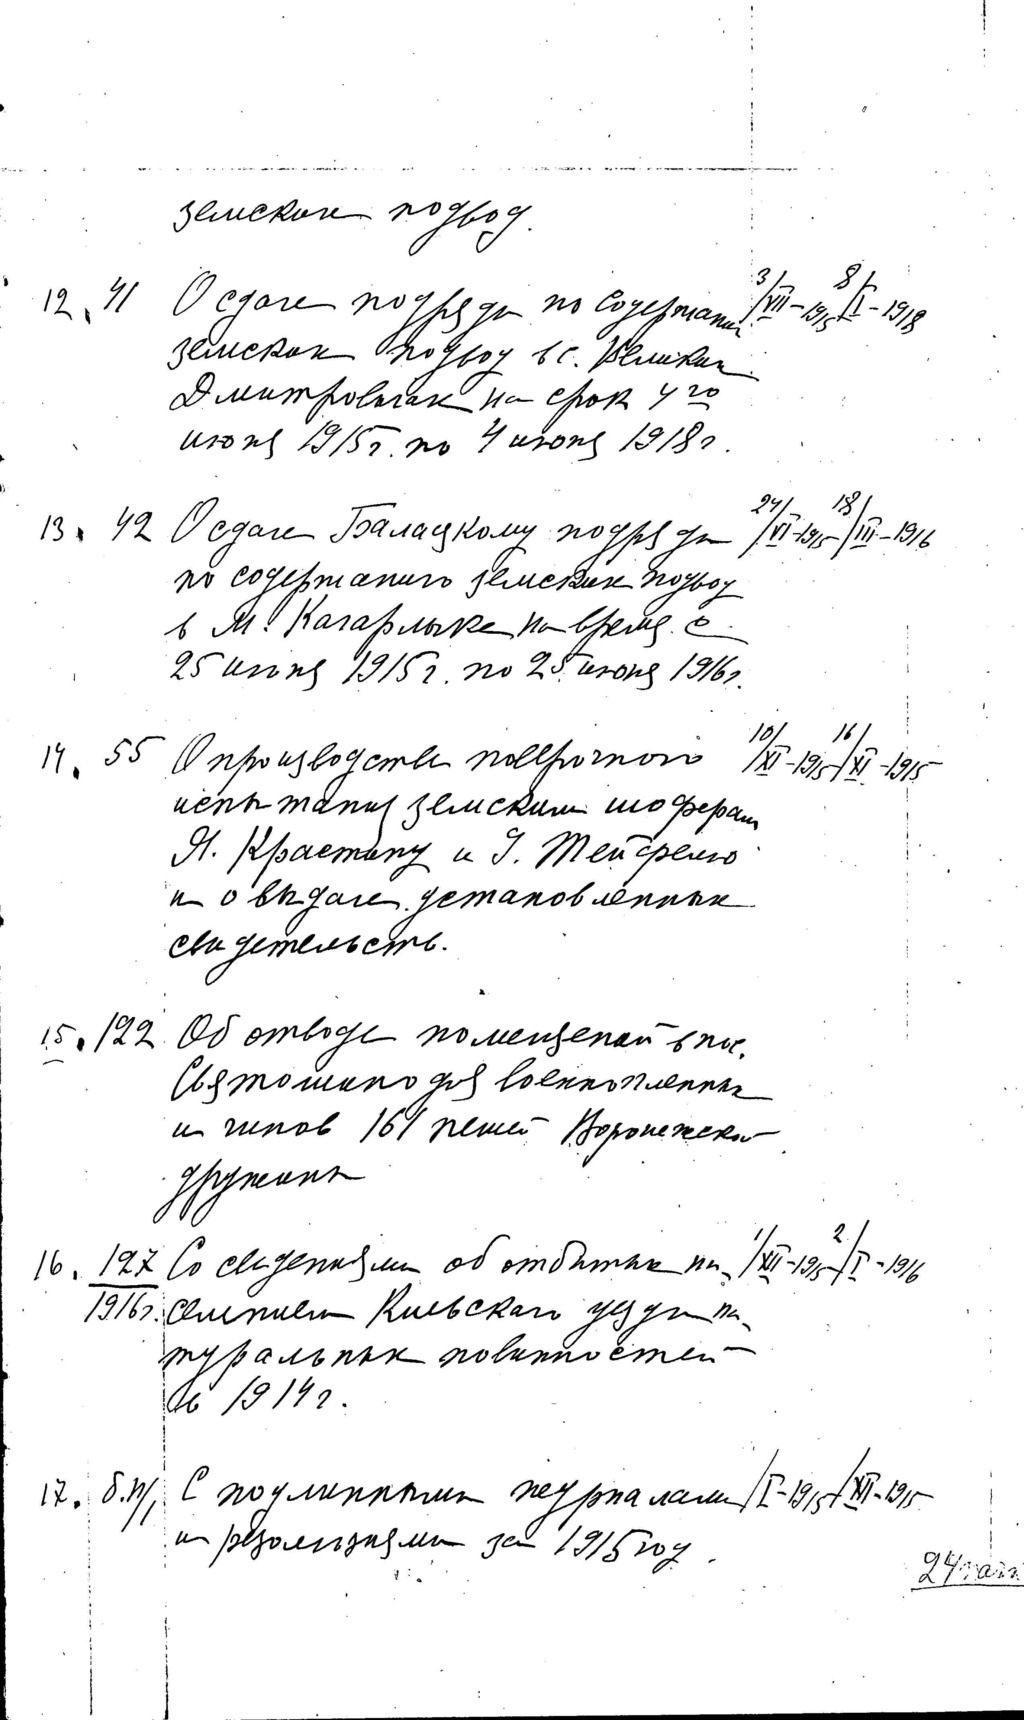 земских подвод.
12. 41 О сдаче подряда по содержанию 3/VII-1915 8/I-1918
земских подвод в с. Великих
Дмитровичах на срок 4го
июня 1915 г. по 4 июня 1918 г.
13. 42 О сдаче Балацкому подряда 24/VI-1915 18/III-1916
по содержанию земских подвод
в м. Кагарлыке на время с
25 июня 1915 г. по 25 июня 1916 г.
14. 55 О производстве поверочного 10/XI-1915 16/XI-1915
испытания земским шоферам
Я. Крастину и Э. Тейфелю
и о выдаче установленных
свидетельств.
15. 122 Об отводе помещений в пос.
Святошино для военнопленных
и чинов 161 пешей Воронежской
дружины
16. 127 Со сведениями об отбытых на- 1/XII-1915 2/I-1916
1916г. селением Киевского уезда на-
туральных повинностей
в 1914 г.
17. б.н/ С подлинными журналами /I-1915 /XII-1915
и резолюциями за 1915 год.